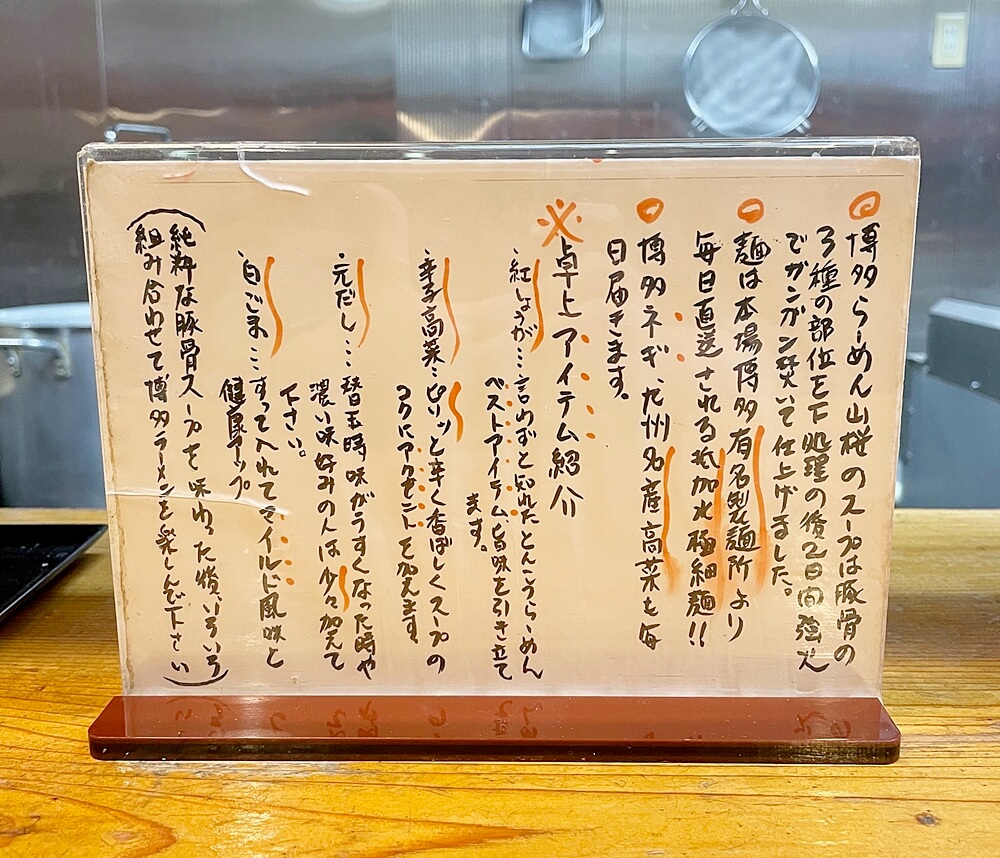 ◎博多らーめん山桜のスープは豚骨の
3種の部位を下処理の後2日間強火
でガンガン焚いて仕上げました。
◎麺は本場博多有名製麺所より
毎日直送される低加水極細麺!!
◎博多ネギ、九州名産高菜も毎
日届きます。
※卓上アイテム紹介
・紅しょうが…言わずと知れたとんこつらーめん
ベストアイテム旨味を引き立て
ます。
・辛子高菜…ピリッと辛く香ばしくスープの
コクにアクセントを加えます
・元だし…替玉時味がうすくなった時や
濃い味好みの人は少々加えて
下さい。
・白ごま…すって入れてマイルド風味と
健康アップ
(純粋な豚骨スープを味わった後いろいろ
組み合わせて博多ラーメンを楽しんで下さい)